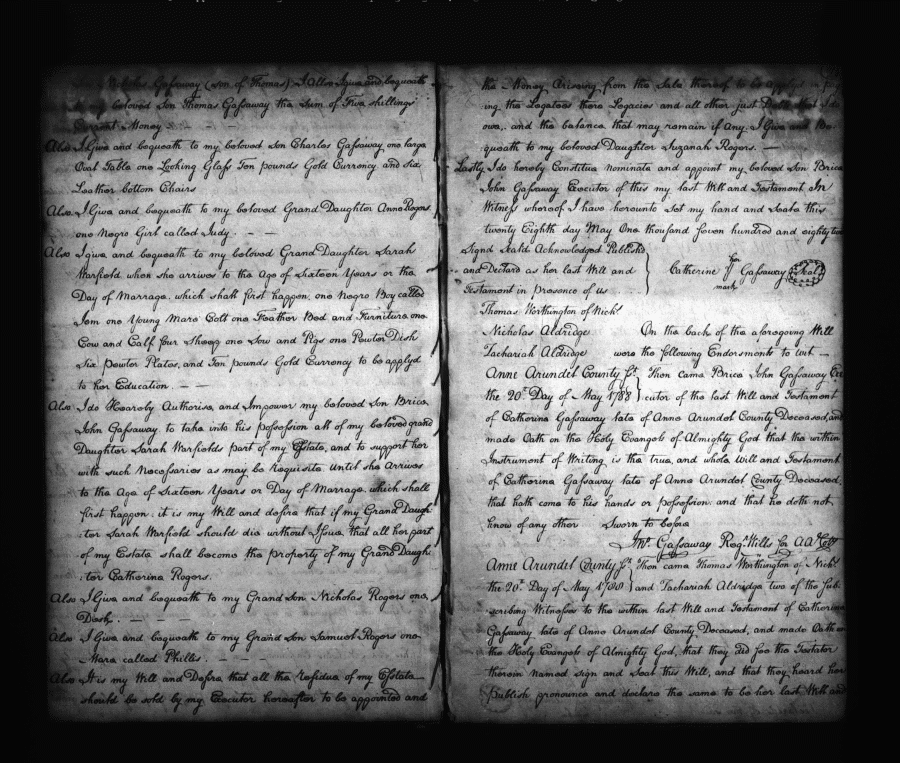 Gassaway (son of Thomas) I Also I give and bequeath
to my beloved Son Thomas Gassaway the Sum of Five shillings
Current Money
Also I Give and bequeath to my beloved Son Charles Gassaway one large
Oval Table one Looking Glass Ten pounds Gold Currency and six
Leather bottom Chairs
Also I Give and bequeath to my beloved Grand Daughter Anne Rogers
one Negro Girl called Judy.
Also I give and bequeath to my beloved Grand Daughter Sarah
Warfield when she arrives to the Age of Sixteen Years or the
Day of Marrage which shall first happen, one Negro Boy called
Jem one Young Mare Colt one Feather Bed and Furniture one
Cow and Calf four Sheep one Sow and Pigs one Pewter Dish
Six Pewter Plates, and Ten pounds Gold Currency to be applyd
to her Education.
Also I do Hearby Authorise and Impower my beloved Son Brice
John Gassaway to take into his possession all of my beloved grand
Daughter Sarah Warfields part of my Estate, and to support her
with such Necessaries as may be Requisite Until she Arrives
to the Age of Sixteen Years or Day of Marrage which shall
first happen: it is my Will and desire that if my Grand Daugh:
:ter Sarah Warfield should die without Issue, that all her part
of my Estate shall become the property of my Grand Daugh:
:ter Catherine Rogers.
Also I Give and bequeath to my Grand Son Nicholas Rogers one
Desk.
Also I Give and bequeath to my Grand Son Samuel Rogers one
Mare called Phillis.
Also It is my Will and Desire that all the residue of my Estate
should be sold by my Executor hereafter to be appointed and
the Money Arissing from the Sale thereof to be in
ing the Legatees there Legacies and all other just Debts that I do
owe, and the balance that may remain if any I Give and be=
queath to my beloved Daughter Suzanah Rogers.
Lastly I do hereby Constitue nominate and appoint my beloved Son Brice
John Gassaway Executor of this my last Will and Testament In
Witness whereof I have hereunto Set my hand and Seale this
twenty Eighth day May One thousand seven hundred and eighty two
Signd Seald Acknowledged Publishd
and Declard as her last Will and
Testament in presence of us
Catherine her mark Gassaway (Seal)
Thomas Worthington of Nichs
Nicholas Aldridge
Zachariah Aldridge
On the back of the aforegoing Will
were the following Endorsments to wit
Anne Arundel County Sc. Then came Brice John Gassaway Exe
the 20th Day of May 1788 cutor of the last Will and Testament
of Catherine Gassaway late of Anne Arundel County Deceased, and
made Oath on the Holy Evangels of Almighty God that the within
Instrument of Writing is the true and whole Will and Testament
of Catherine Gassaway late of Anne Arundel County Deceased
that hath come to his hands or possession: and that he doth not
know of any other Sworn to before
Jno. Gassaway Regr. Wills for AA Coty
Anne Arundel County Sc. Then came Thomas Worthington of Nichs.
the 20th Day of May 1788 and Zachariah Aldridge two of the Sub:
scribing Witnesses to the within last Will and Testament of Catherine
Gassaway late of Anne Arundel County Deceased, and made Oath on
the Holy Evangels of Almighty God, that they did see the Testator
therein Named sign and Seal this Will, and that they heard her
Publish pronounce and declare the same to be her last Will and